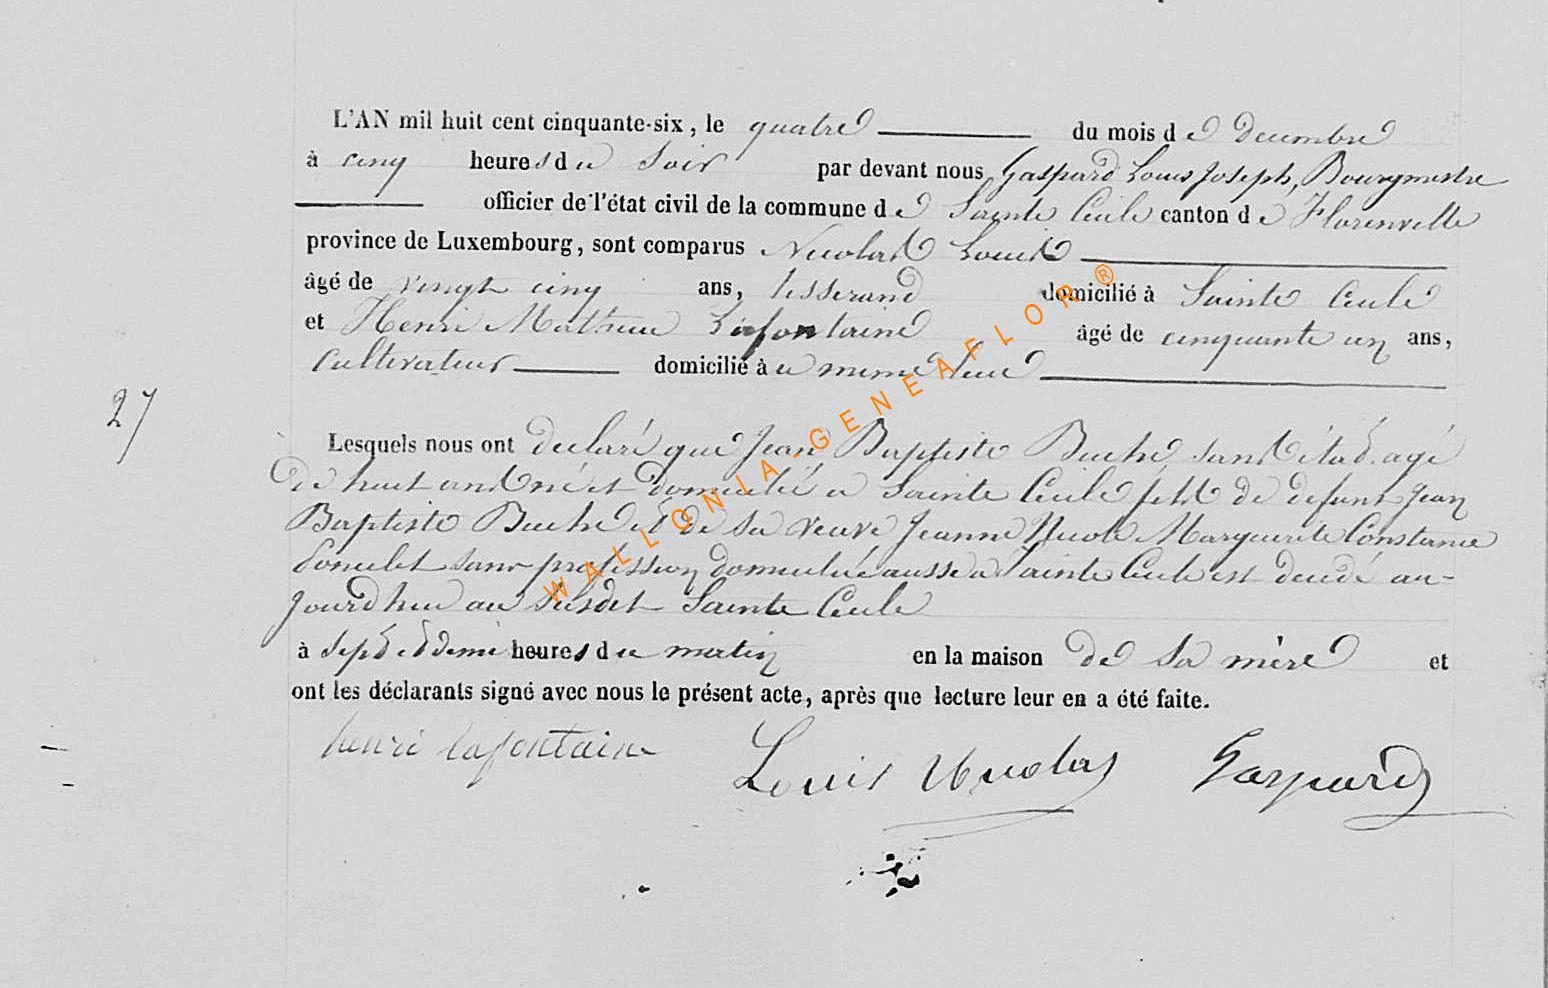 L'AN mil huit cent cinquante-six, le quatre du mois de Decembre
à cinq heures du Soir par devant nous Gaspard Louis Joseph, Bourgmestre
officier de l'état civil de la commune de Sainte Cecile canton de Florenville
province de Luxembourg, sont comparus Nicolas Louis
âgé de vingt cinq ans, tisserand domicilié à Sainte Cecile
et Henri Mathieu Lafontaine âgé de cinquante un ans,
Cultivateur domicilié à u meme lieu
27
Lesquels nous ont declaré que Jean Baptiste Buche sans état agé
de huit ans né et domicilié a Sainte Cecile fils de defunt Jean
Baptiste Buche et de sa veuve Jeanne Nicole Marguerite Constance
sans profession domiciliée aussi a Sainte Cecile est decedé au-
jourd'hui au susdit Sainte Cecile
à sept et demi heures du matin en la maison de sa mère et
ont les déclarants signé avec nous le présent acte, après que lecture leur en a été faite.
henri lafontaine Louis Nicolas Gaspard
WALLONIA-GENEAFLOR®